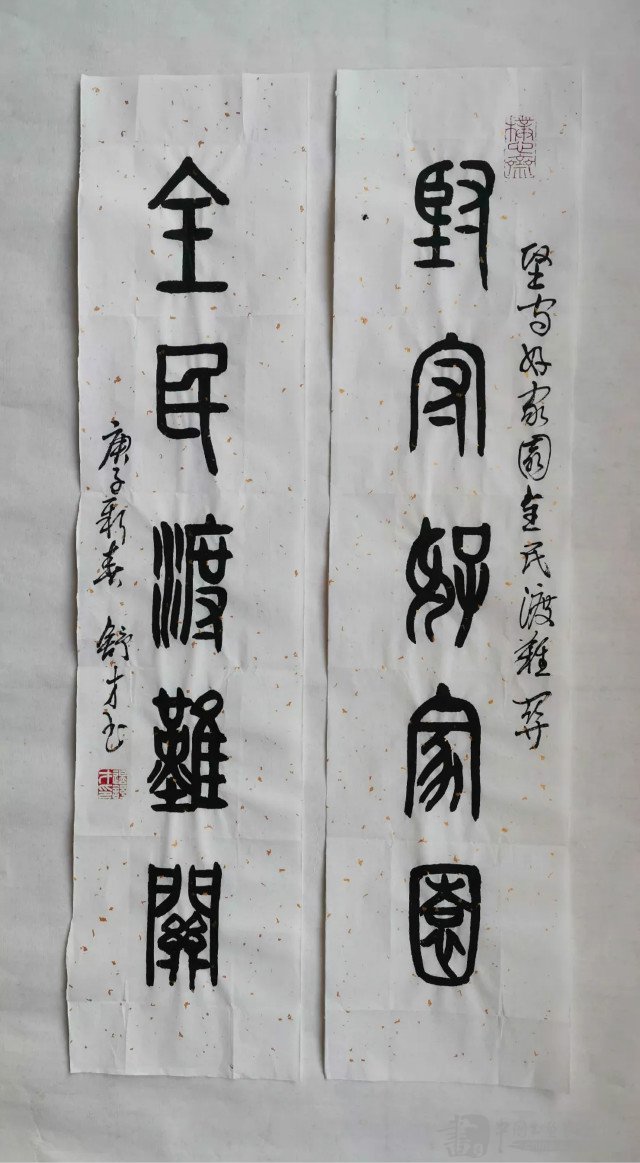 堅守好家園
堅守好家園全民渡難關
全民渡難關
庚子新春 舒才書